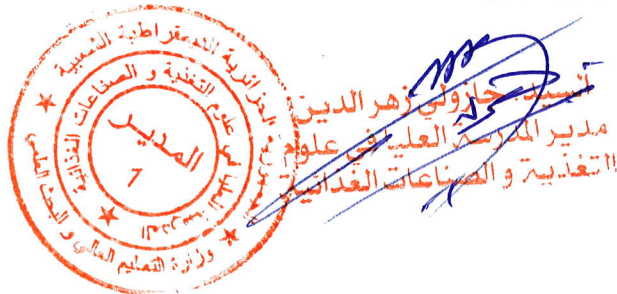 الجمهورية الجزائرية الديمقراطية الشعبية
وزارة التعليم العالي و البحث العلمي
المدرسة العليا في علوم التغذية و الصناعات الغذائية
المدير
1
السيد: جازولي زهر الدين
مدير المدرسة العليا في علوم
التغذية و الصناعات الغذائية